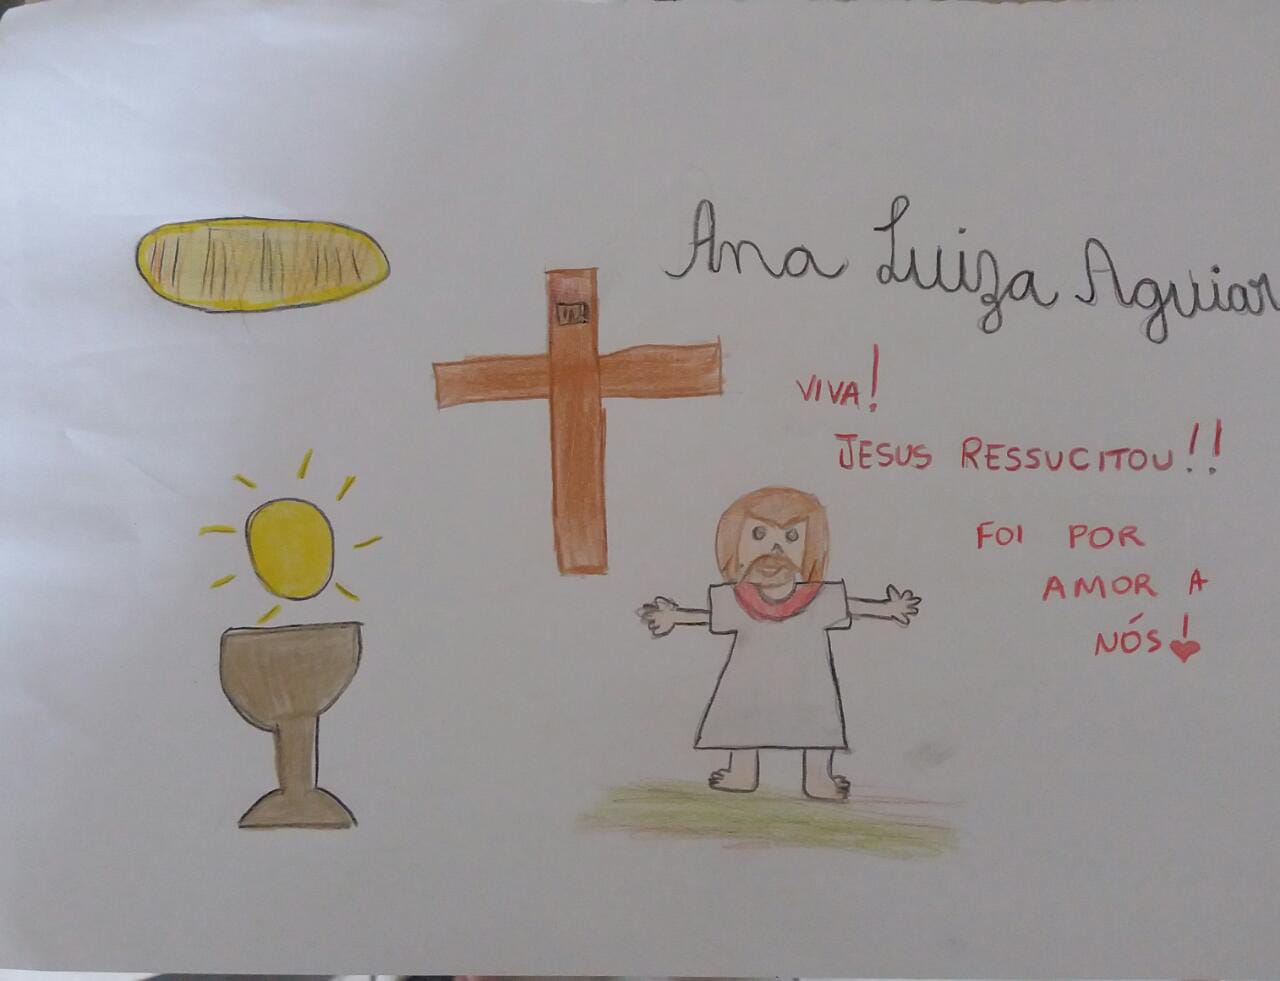 Ana Luiza Aguiar
VIVA!
JESUS RESSUCITOU!!
FOI POR
AMOR A
NÓS!